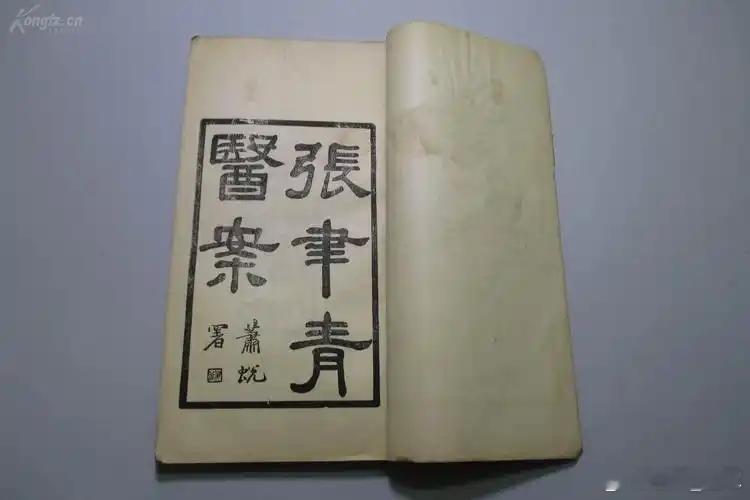 張聿青
醫案
蕭蛻
署
Kongfz.cn